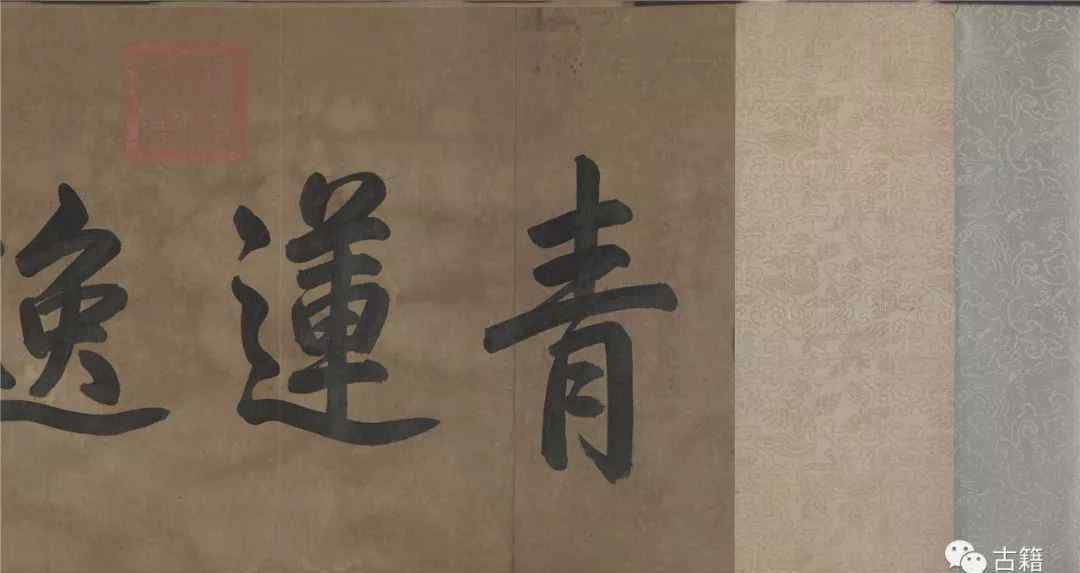 青蓮逸
古籍